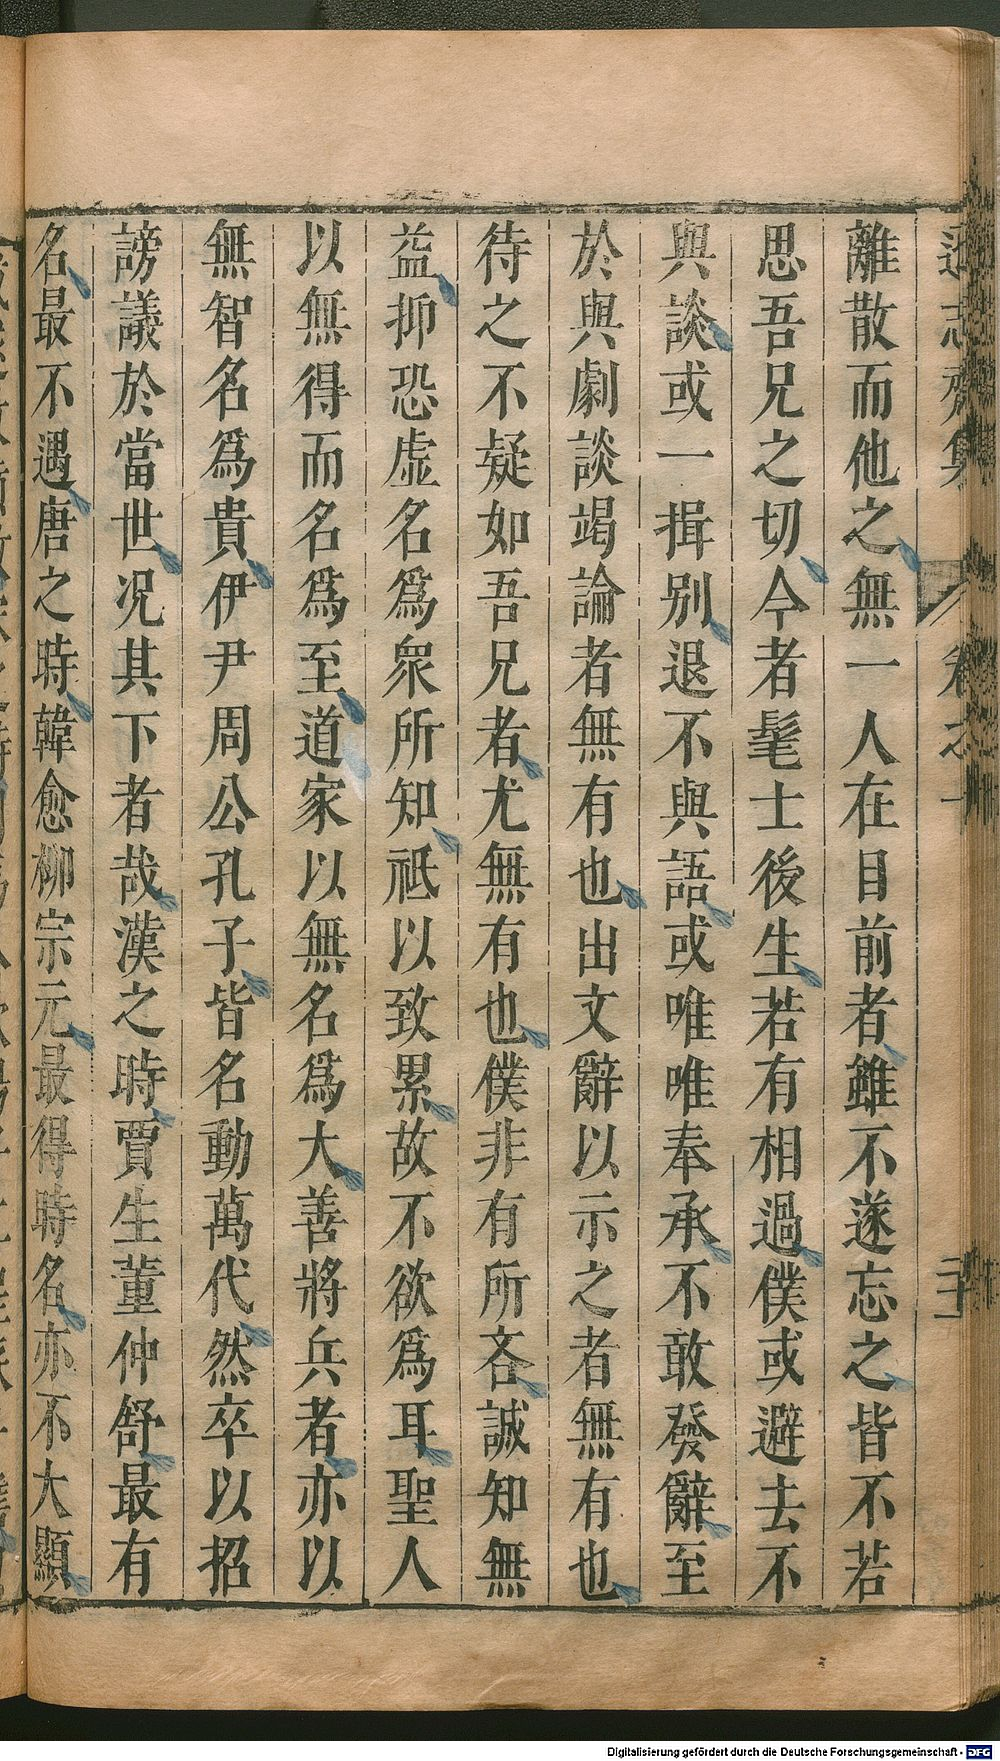 遜志齋集
卷之十一
二十
離散而他之無一人在目前者雖不遂忘之皆不若
思吾兄之切今者髦士後生若有相過僕或避去不
與談或一揖别退不與語或唯唯奉承不敢發辭至
於與劇談竭論者無有也出文辭以示之者無有也
待之不疑如吾兄者尤無有也僕非有所吝誠知無
益抑恐虛名爲衆所知祗以致累故不欲爲耳聖人
以無得而名爲至道家以無名爲大善將兵者亦以
無智名爲貴伊尹周公孔子皆名動萬代然卒以招
謗議於當世况其下者哉漢之時賈生董仲舒最有
名最不遇唐之時韓愈柳宗元最得時名亦不大顯
Digitalisierung gefördert durch die Deutsche Forschungsgemeinschaft - DFG